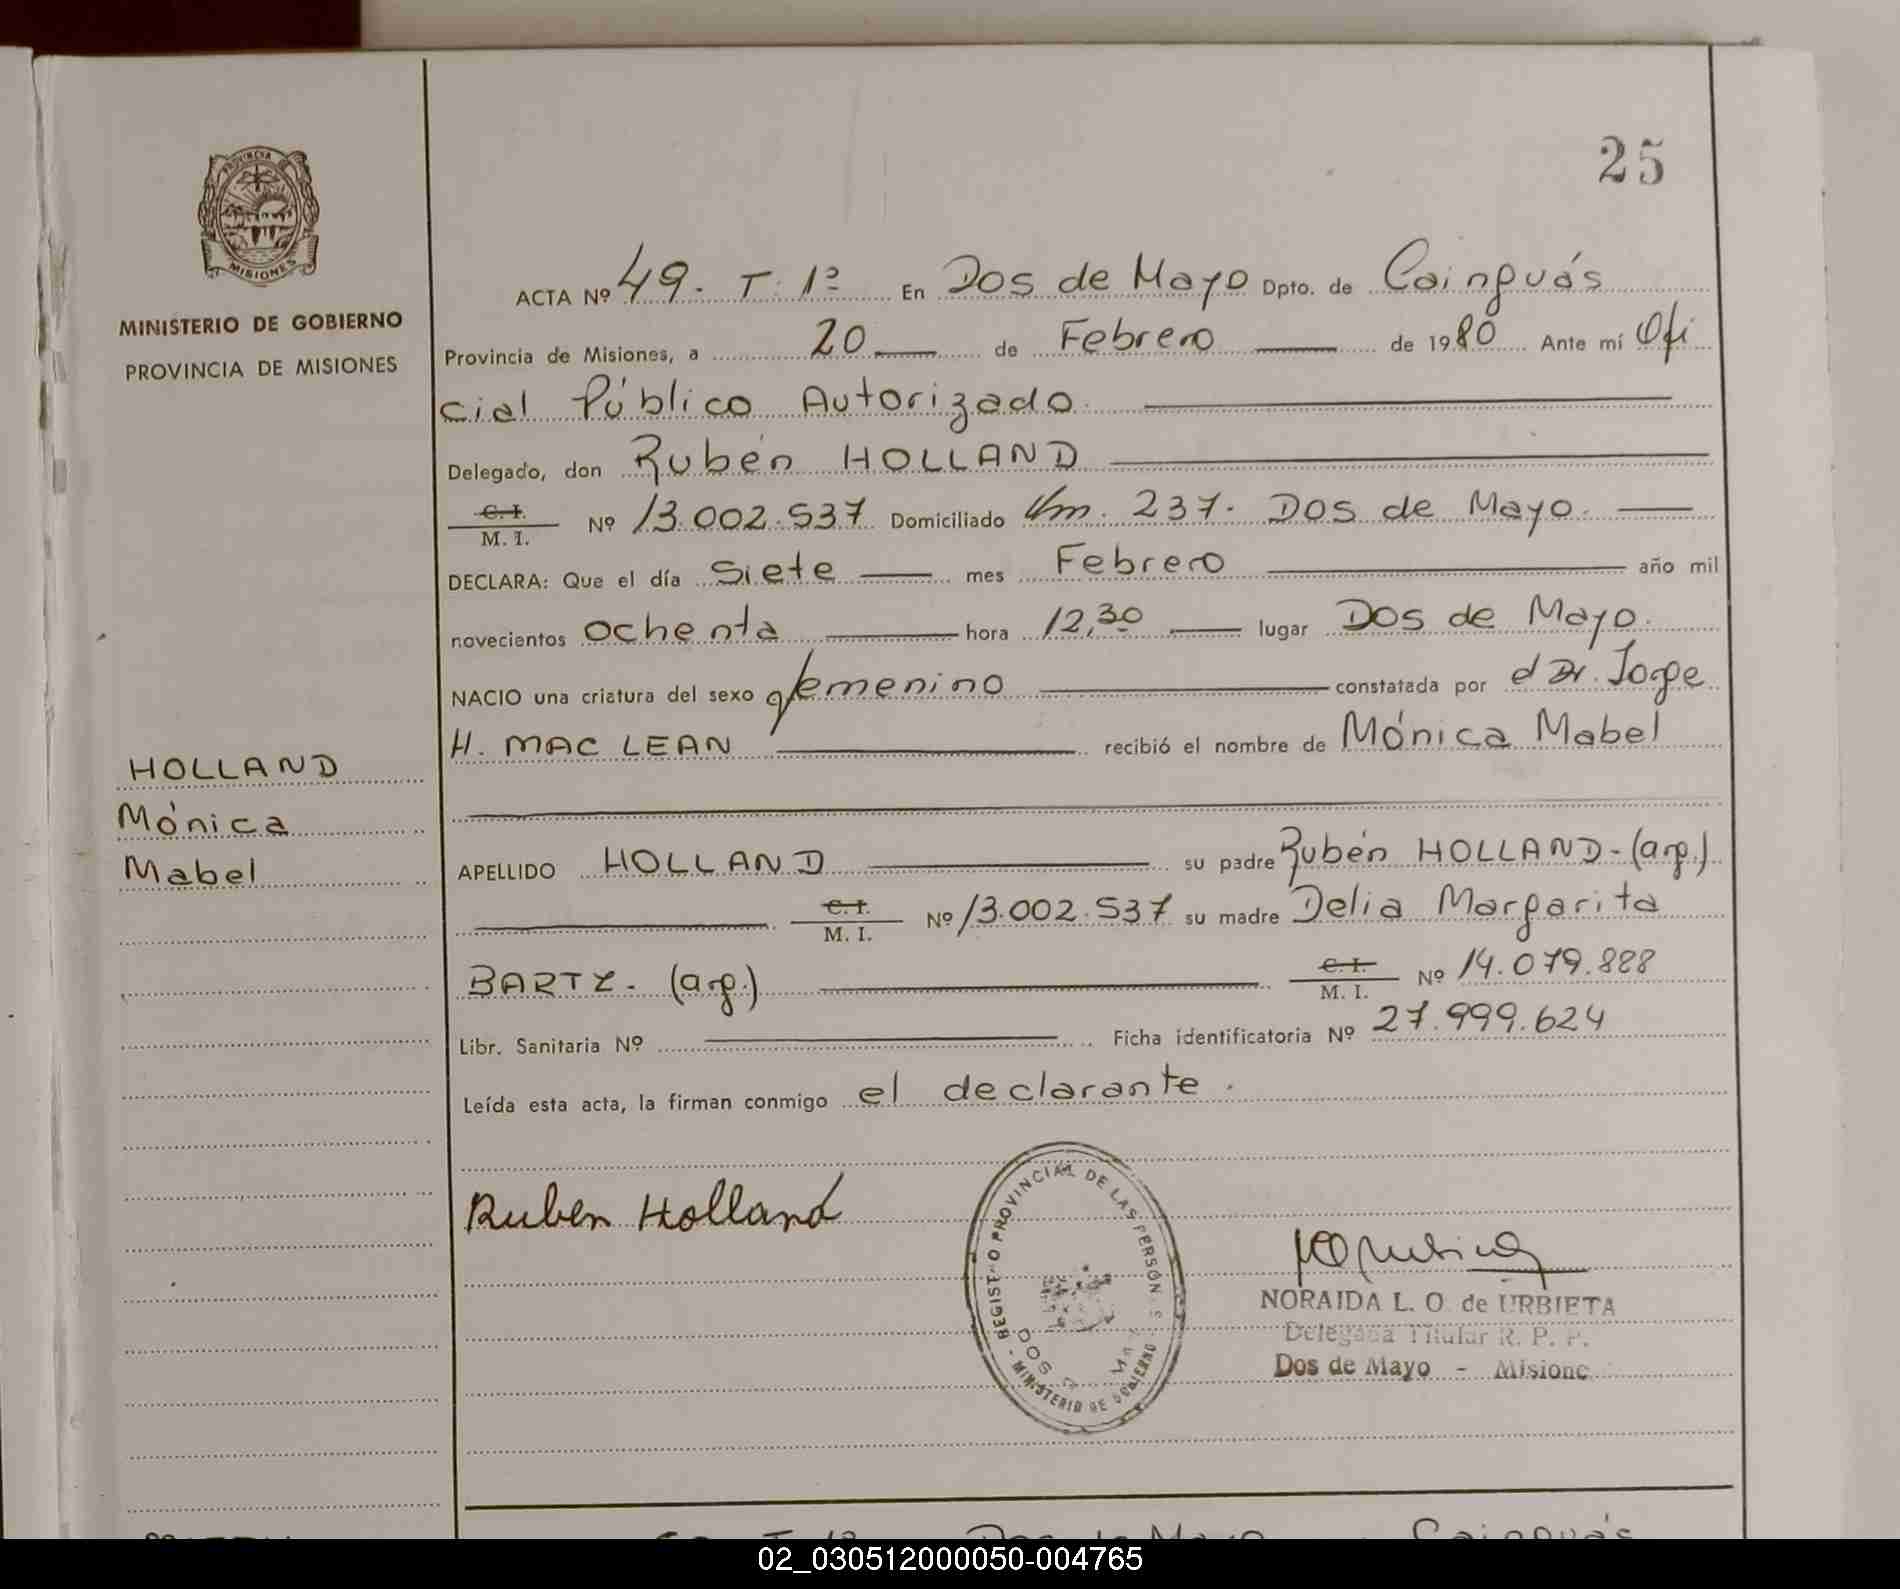 25
PROVINCIA DE
MISIONES
MINISTERIO DE GOBIERNO
PROVINCIA DE MISIONES
ACTA Nº 49. T. 1º En Dos de Mayo Dpto. de Cainguás
Provincia de Misiones, a 20 de Febrero de 1980 Ante mí Ofi
cial Público Autorizado
Delegado, don Rubén HOLLAND
C. I. / M. I. Nº 13.002.537 Domiciliado Km. 237. Dos de Mayo.
DECLARA: Que el día siete mes Febrero año mil
novecientos ochenta hora 12,30 lugar Dos de Mayo.
NACIO una criatura del sexo femenino constatada por el Dr. Jorge
H. MAC LEAN recibió el nombre de Mónica Mabel
HOLLAND
Mónica
Mabel
APELLIDO HOLLAND su padre Rubén HOLLAND-(arg.)
C. I. / M. I. Nº 13.002.537 su madre Delia Margarita
BARTZ. (arg.) C. I. / M. I. Nº 14.079.888
Libr. Sanitaria Nº Ficha identificatoria Nº 27.999.624
Leída esta acta, la firman conmigo el declarante.
Ruben Holland
REGISTRO PROVINCIAL DE LAS PERSONAS
MINISTERIO DE GOBIERNO
NORAIDA L. O. de URBIETA
Delegada Titular R. P. P.
Dos de Mayo - Misione
Dos de Mayo Cainguás
02_030512000050-004765